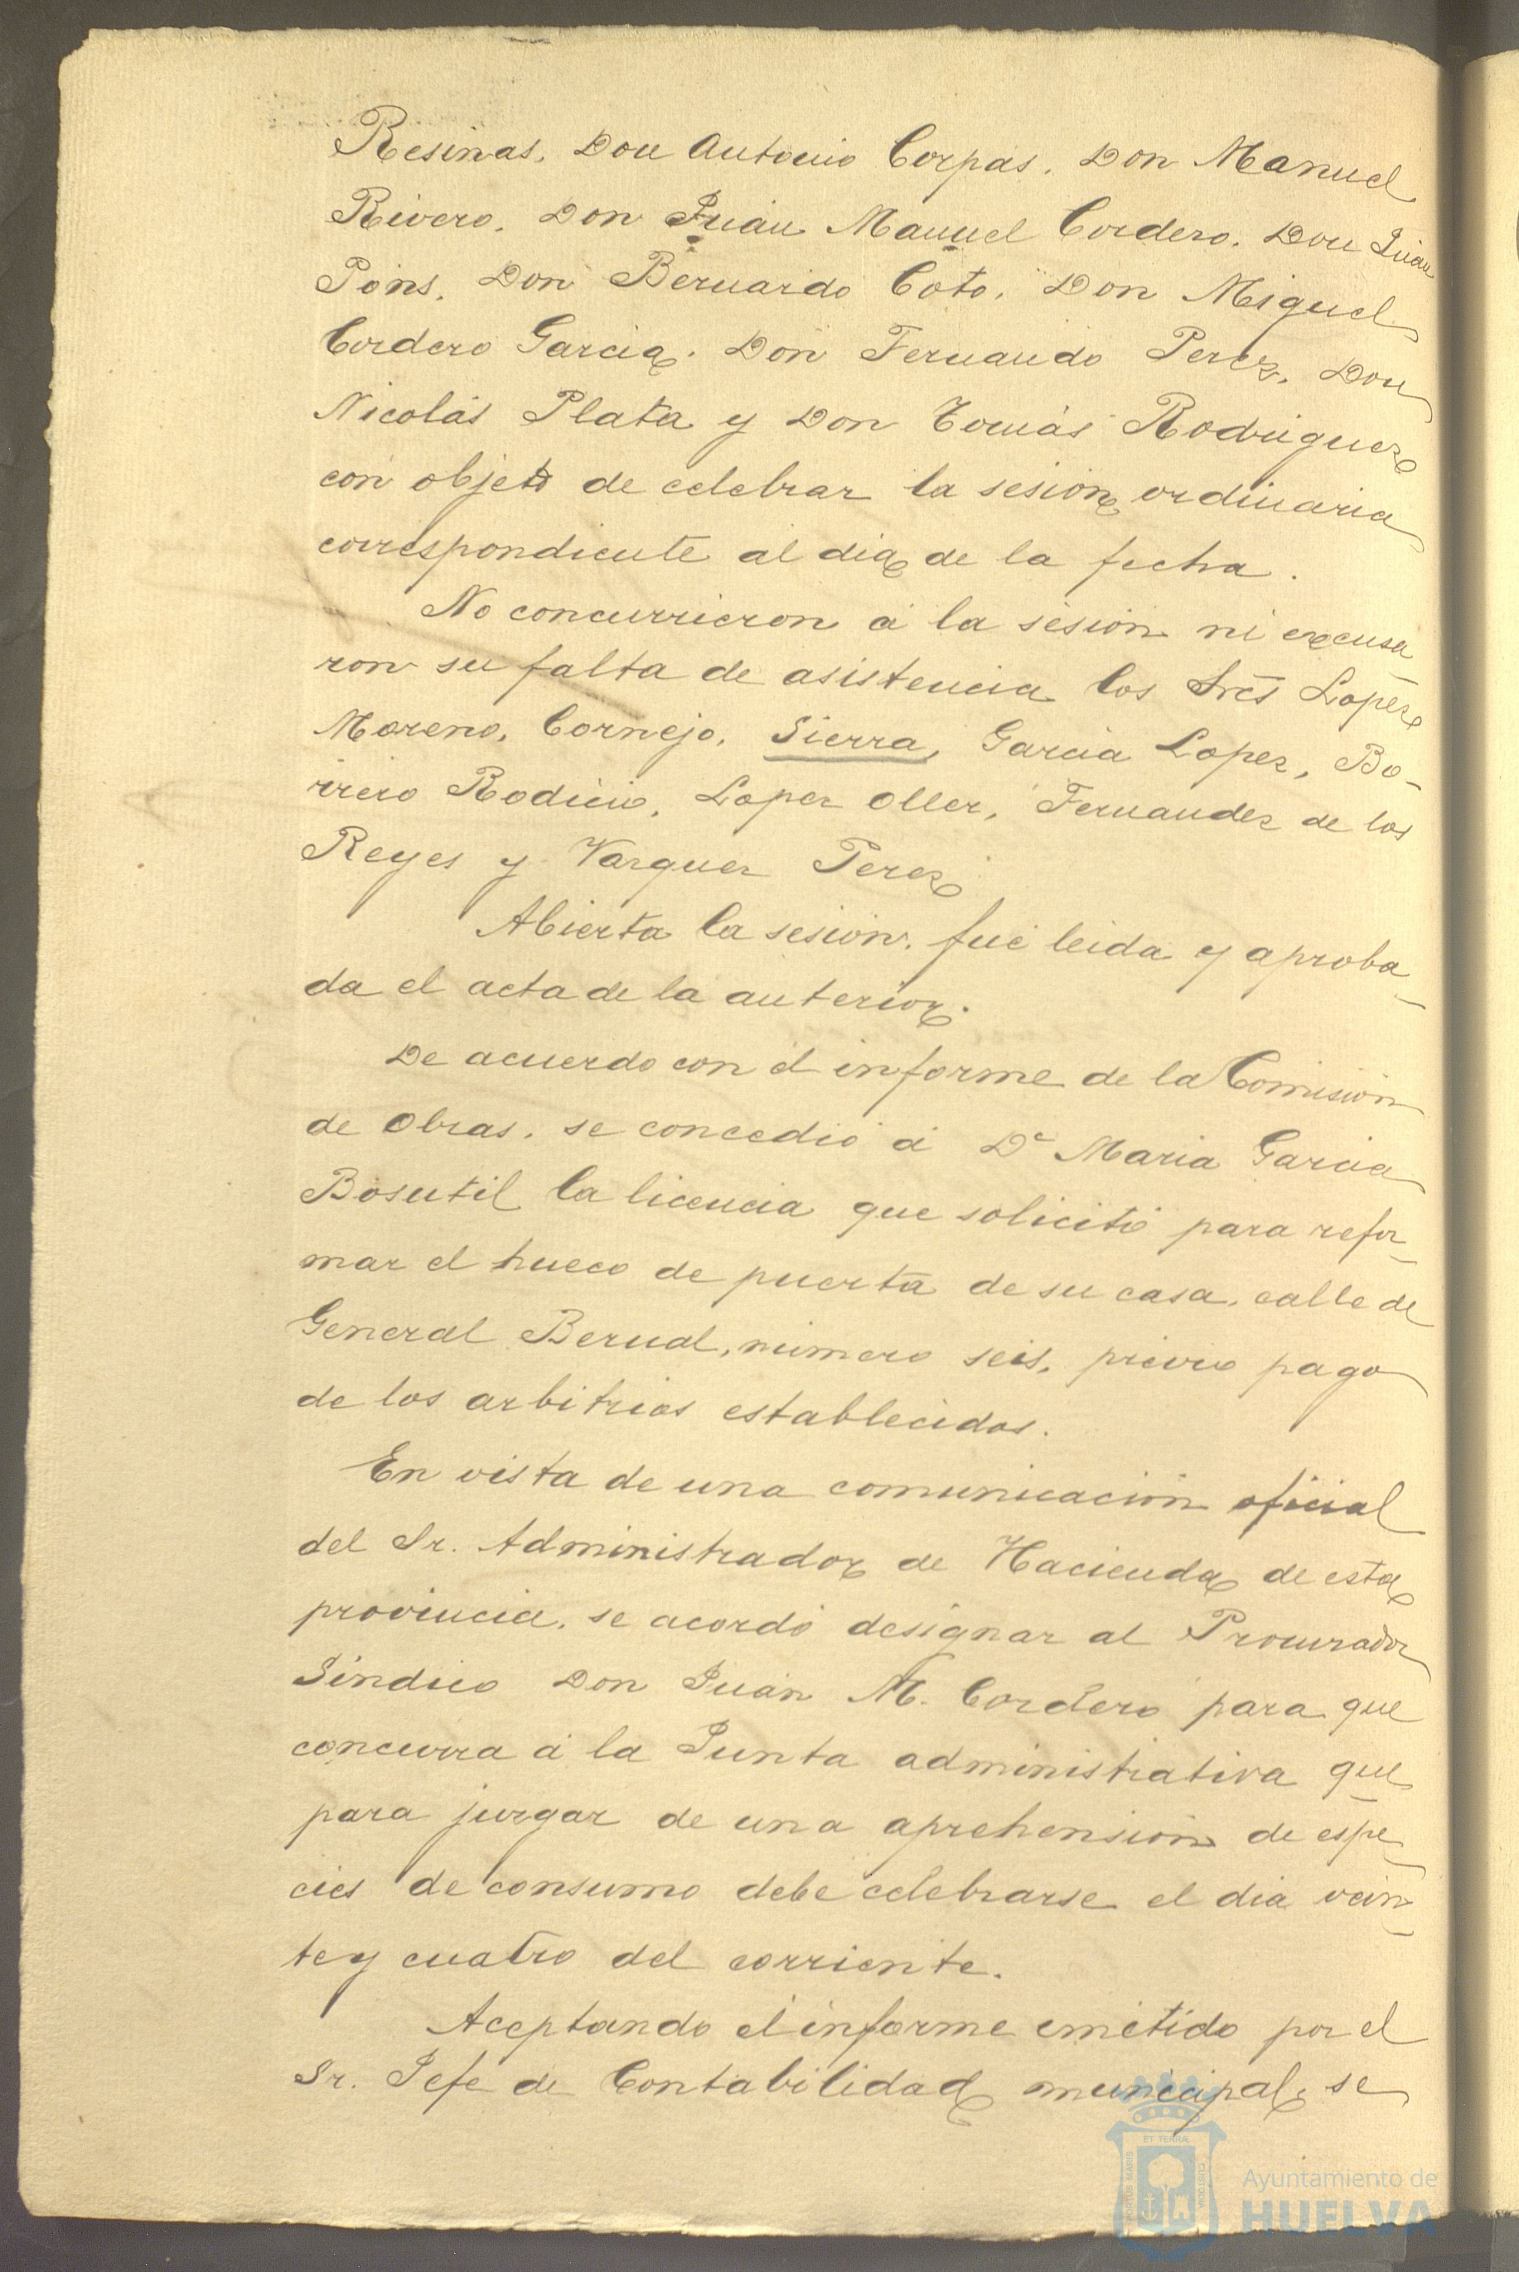 Resinas, Don Antonio Corpas, Don Manuel
Rivero, Don Juan Manuel Cordero, Don Juan
Pons, Don Bernardo Coto, Don Miguel
Cordero Garcia, Don Fernando Perez, Don
Nicolás Plata y Don Tomás Rodriguez
con objeto de celebrar la sesion ordinaria
correspondiente al dia de la fecha.
No concurrieron á la sesión ni excusa
ron su falta de asistencia los Sres Lopez
Moreno, Cornejo, Sierra, Garcia Lopez, Bo-
rrero Rodicio, Lopez Oller, Fernandez de los
Reyes y Vazquez Perez
Abierta la sesión, fué leida y aproba_
da el acta de la anterior.
De acuerdo con el informe de la Comisión
de Obras, se concedió á Dª Maria Garcia
Bosutil la licencia que solicitó para refor_
mar el hueco de puerta de su casa, calle de
General Bernal, número seis, previo pago
de los arbitrios establecidos.
En vista de una comunicación oficial
del Sr. Administrador de Hacienda de esta
provincia, se acordó designar al Procurador
Síndico Don Juan M. Cordero para que
concurra á la Junta administrativa que
para juzgar de una aprehension de espe_
cies de consumo debe celebrarse el dia vein_
te y cuatro del corriente.
Aceptando el informe emitido por el
Sr. Jefe de Contabilidad municipal, se
Ayuntamiento de
HUELVA